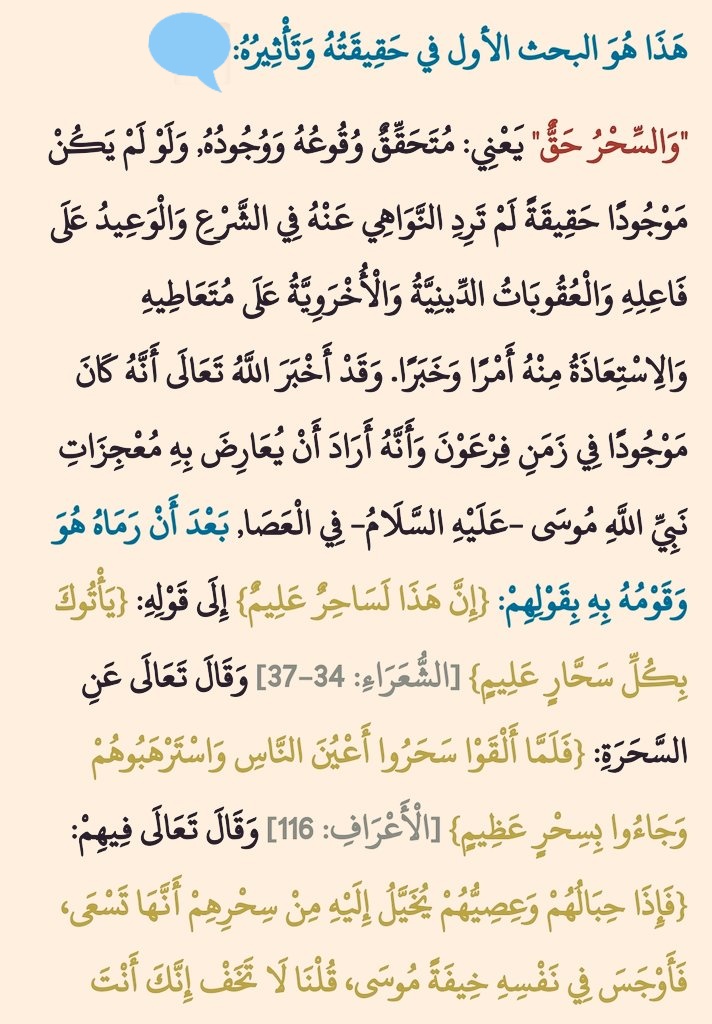 هَذَا هُوَ البحث الأول في حَقِيقَتُهُ وَتَأْثِيرُهُ:
"وَالسِّحْرُ حَقٌّ" يَعْنِي: مُتَحَقِّقٌ وُقُوعُهُ وَوُجُودُهُ, وَلَوْ لَمْ يَكُنْ
مَوْجُودًا حَقِيقَةً لَمْ تَرِدِ النَّوَاهِي عَنْهُ فِي الشَّرْعِ وَالْوَعِيدُ عَلَى
فَاعِلِهِ وَالْعُقُوبَاتُ الدِّينِيَّةُ وَالْأُخْرَوِيَّةُ عَلَى مُتَعَاطِيهِ
وَالِاسْتِعَاذَةُ مِنْهُ أَمْرًا وَخَبَرًا. وَقَدْ أَخْبَرَ اللَّهُ تَعَالَى أَنَّهُ كَانَ
مَوْجُودًا فِي زَمَنِ فِرْعَوْنَ وَأَنَّهُ أَرَادَ أَنْ يُعَارِضَ بِهِ مُعْجِزَاتِ
نَبِيِّ اللَّهِ مُوسَى -عَلَيْهِ السَّلَامُ- فِي الْعَصَا, بَعْدَ أَنْ رَمَاهُ هُوَ
وَقَوْمُهُ بِهِ بِقَوْلِهِمْ: {إِنَّ هَذَا لَسَاحِرٌ عَلِيمٌ} إِلَى قَوْلِهِ: {يَأْتُوكَ
بِكُلِّ سَحَّارٍ عَلِيمٍ} [الشُّعَرَاءِ: 34-37] وَقَالَ تَعَالَى عَنِ
السَّحَرَةِ: {فَلَمَّا أَلْقَوْا سَحَرُوا أَعْيُنَ النَّاسِ وَاسْتَرْهَبُوهُمْ
وَجَاءُوا بِسِحْرٍ عَظِيمٍ} [الْأَعْرَافِ: 116] وَقَالَ تَعَالَى فِيهِمْ:
{فَإِذَا حِبَالُهُمْ وَعِصِيُّهُمْ يُخَيَّلُ إِلَيْهِ مِنْ سِحْرِهِمْ أَنَّهَا تَسْعَى،
فَأَوْجَسَ فِي نَفْسِهِ خِيفَةً مُوسَى، قُلْنَا لَا تَخَفْ إِنَّكَ أَنْتَ